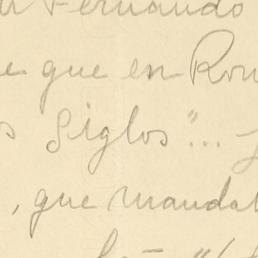 Fernando
e que en Rom
s Siglos"...
, que mandab